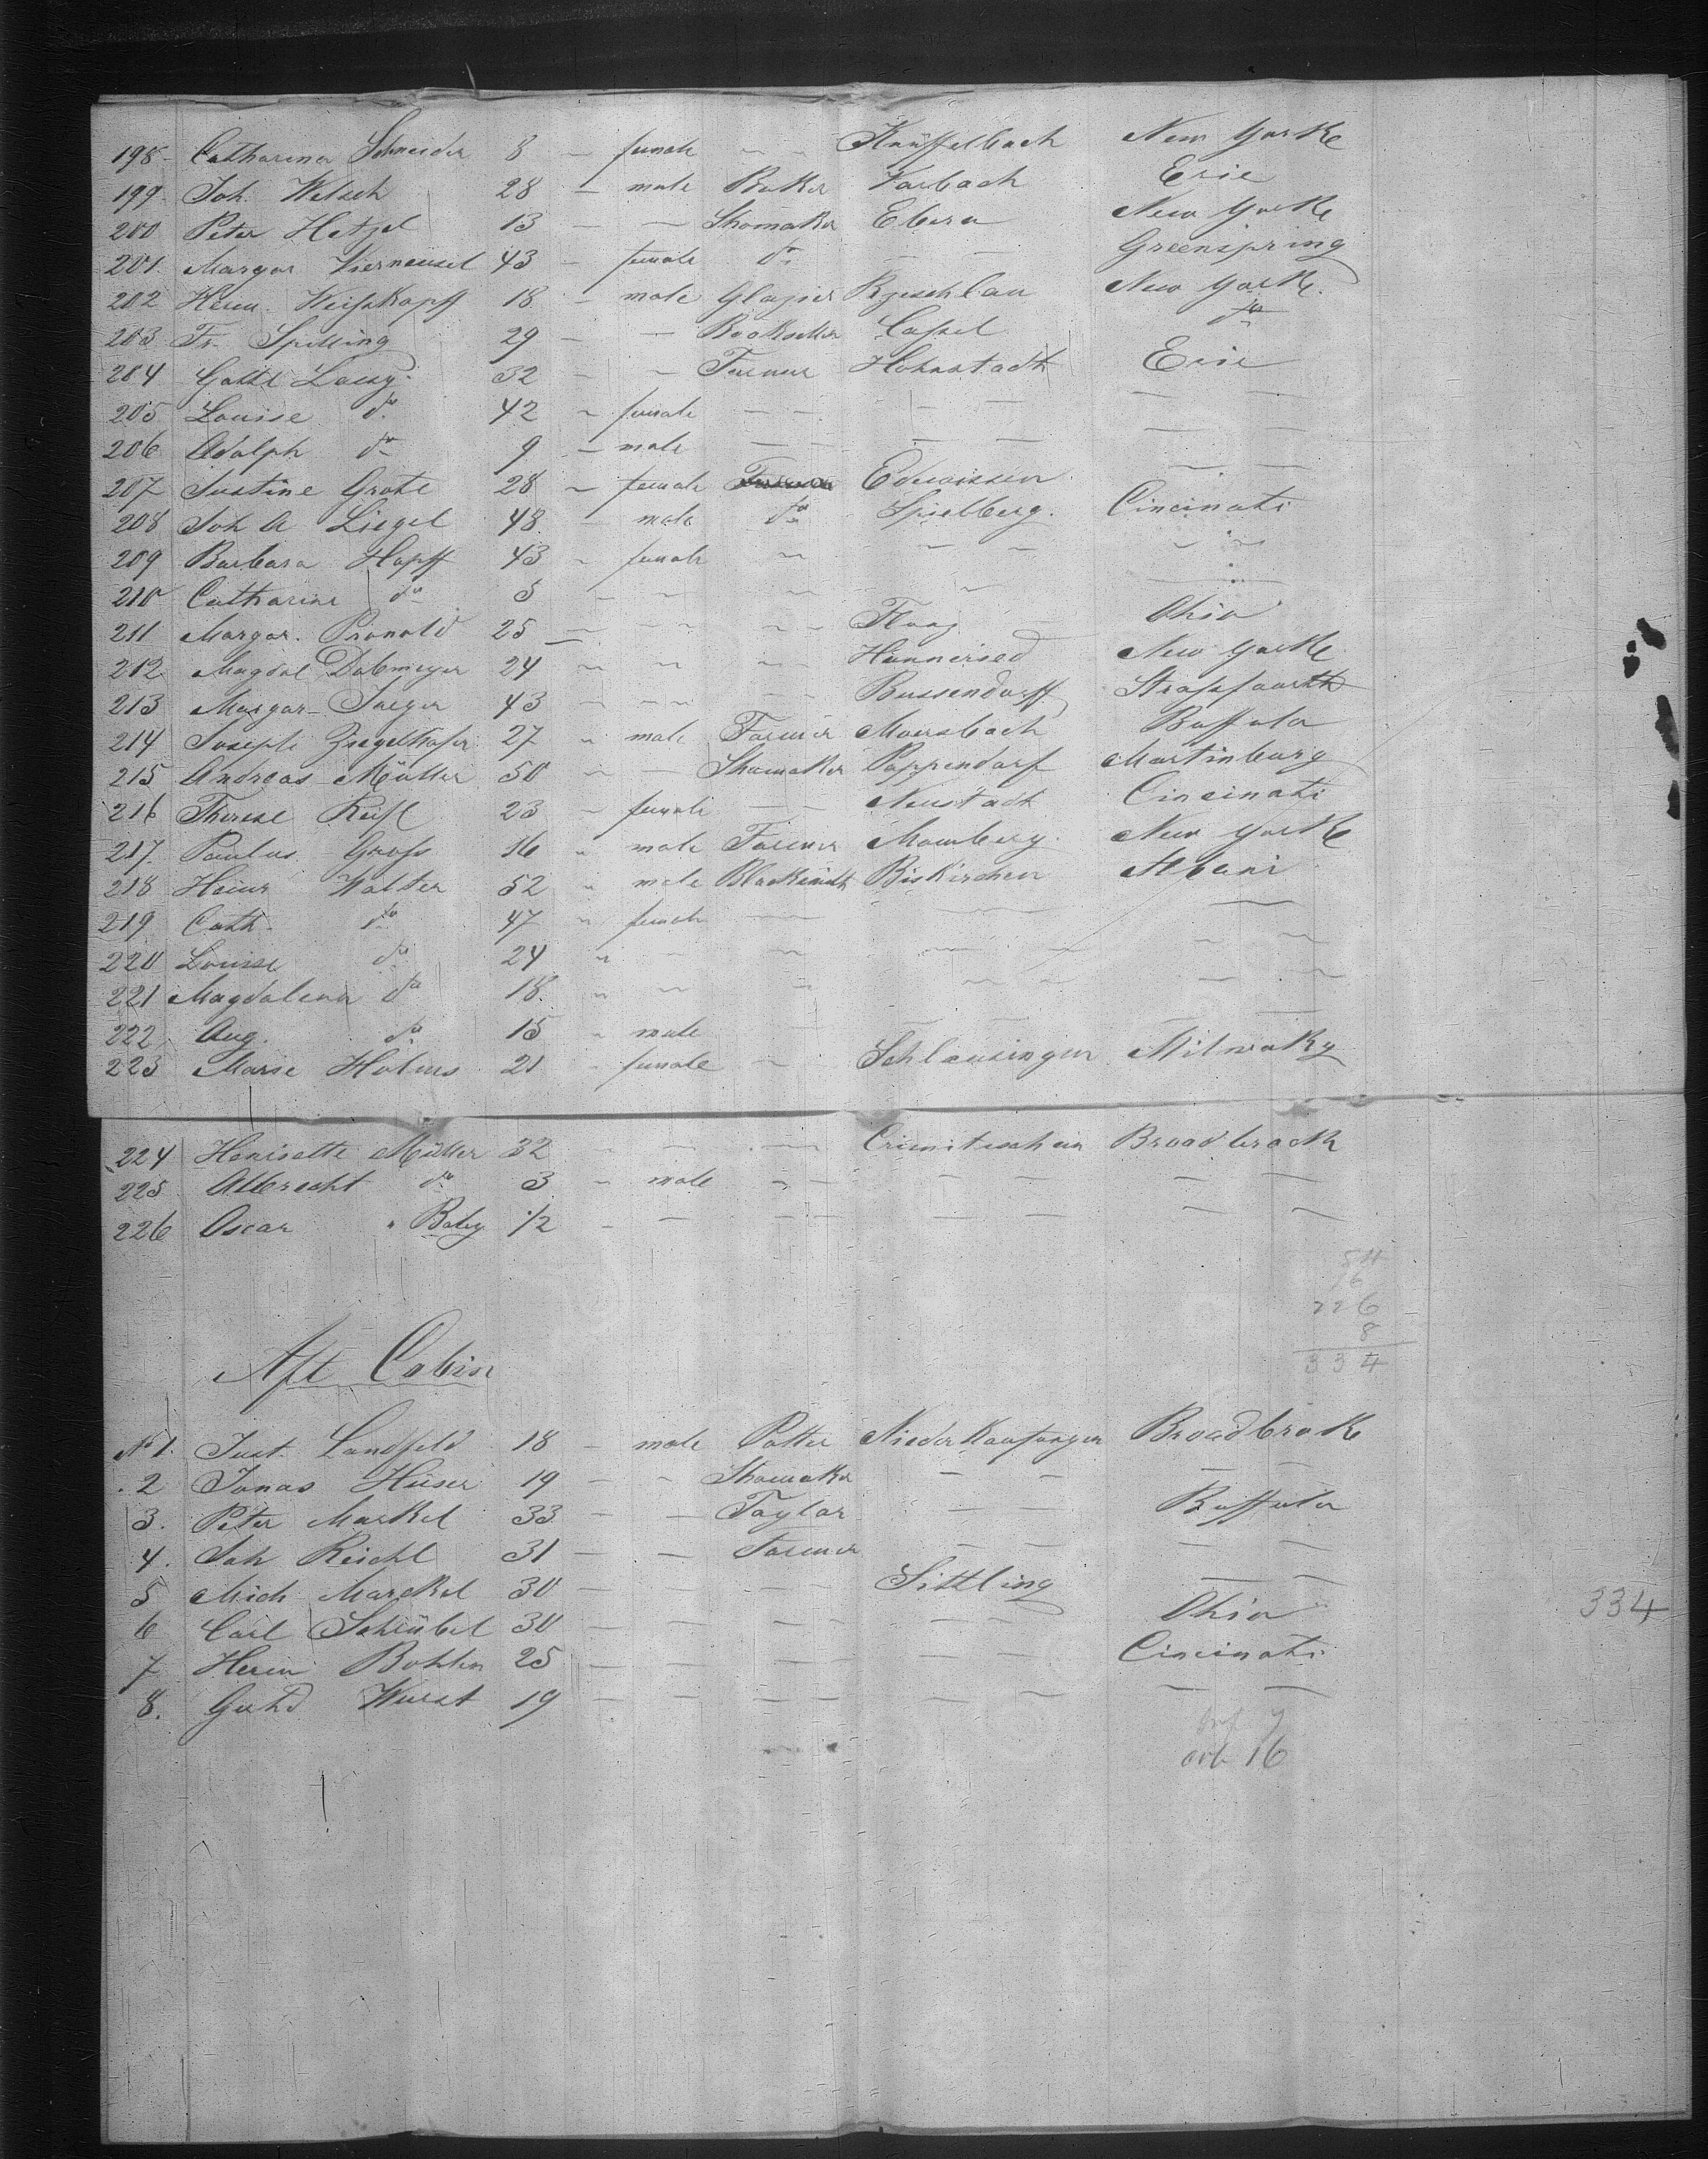 198 Catharina Schneider 8 — female — — Knüffelbach New Yorke
199 Joh. Welsch 28 — male Baker Karbach Erie
200 Peter Hetzel 13 — — Shomaker Ebera New Yorke
201. Margar 43 — female do — — Greenspring
202 Herm. Weißkopff 18 — male Glazier New Yorke.
203 Fr. Spilling 29 — — Bookseller Cassel do
204 Gottl 32 — — Farmer Hohnstadt Erie
205 Louise do 42 — female — — — — — —
206 Adolph do 9 — male — — — — — —
207 Justine Grote 28 — female Edemissen — —
208 Joh A Liegel 48 — male do Spielberg. Cincinati
209 Barbara Hopff 43 — female — — — — —
210 Catharine do 5 — — — — — —
211 Margar. 25 — — — — Haag Ohio
212 Magdal Dobmeyer 24 — — — — New Yorke
213 Margar Jaeger 43 — — — — Bussendorff
214 Joseph Ziegelhafer 27 " male Farmer Morsbach Buffalo
215 Andreas Müller 50 " — Shomaker Poppendorf Martinburg
216 Therese Reifl 23 — female — — Neustadt Cincinati
217. Paulus Gross 16 " male Farmer Momberg. New Yorke
218 Heinr Walter 52 " male Blacksmith Biskirchen Albani
219 Cath. do 47 " female — — — —
220 Louise do 24 " — — — — — —
221 Magdalena do 18. " — — — — — —
222 Aug. do 15 " male — — — —
223 Marie Holms 21 — female — Schleusingen Milwaky
224 Henriette Müller 32 — — — — Broadbrock
225 Albrecht do 3 — male — — — — — —
226 Oscar " Baby 1/2 — — — — — — — —
54
226
8
334
Aft Cabin
No 1. Just. Landfeld 18 — male Potter Niederkaufungen Broadbrok
2 Jonas Hüser 19 — — Shomaker — — — —
3. Peter Markel 33 — — Taylor — — Buffalo
4. Joh Reichl 31 — — Farmer — — — —
5 Mich Marckel 30 — — — Sittling — —
334
6 Carl Schrübel 30 — — — — — — Ohio
7 Herm Bohlen 25 — — — — — — Cincinati
8. Gerhd Wurst 19 — — — — — — — —
inf 7
16